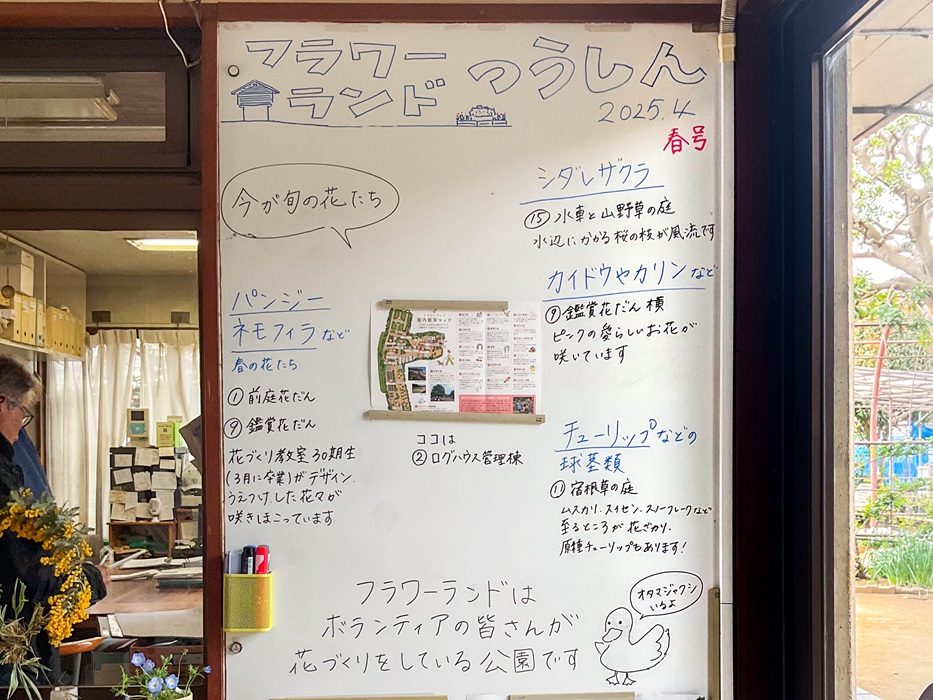 フラワー
ランド
つうしん
2025.4
春号
今が旬の花たち
パンジー
ネモフィラなど
春の花たち
①前庭花だん
⑨鑑賞花だん
花づくり教室30期生
(3月に卒業)がデザイン
うえつけした花々が
咲きほこっています
園内散策マップ
ココは
②ログハウス管理棟
シダレザクラ
⑮水車と山野草の庭
水辺にかかる桜の枝が風流です
カイドウやカリンなど
⑨鑑賞花だん 横
ピンクの愛らしいお花が
咲いています
チューリップなどの
球茎類
⑪宿根草の庭
ムスカリ、スイセン、スノーフレークなど
至るところが花ざかり、
原種チューリップもあります!
フラワーランドは
ボランティアの皆さんが
花づくりをしている公園です
オタマジャクシ
いるよ